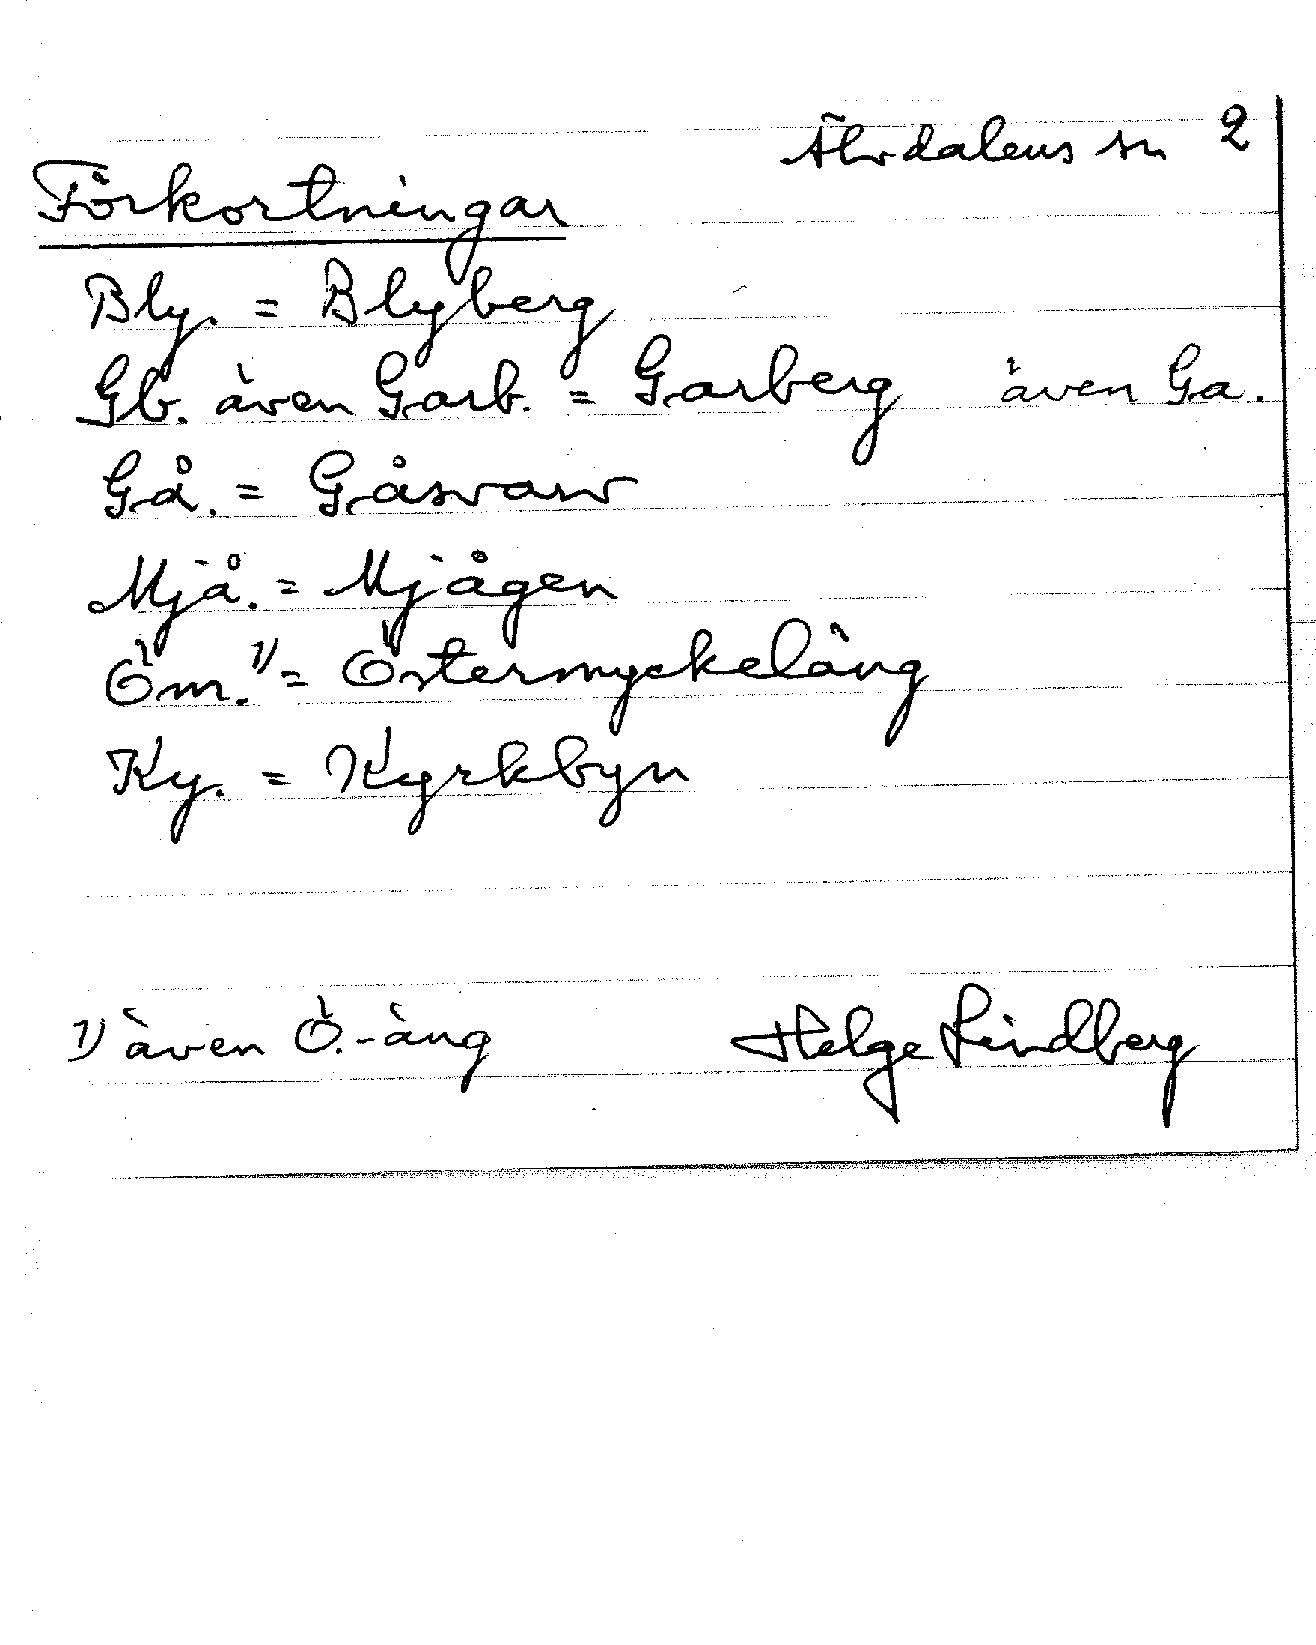 Älvdalens sn 2
Förkortningar
Bly. = Blyberg
Gb. även Garb. = Garberg även Ga.
Gå. = Gåsvarv
Mjå. = Mjågen
Öm. 1) = Östermyckeläng
Ky. = Kyrkbyn
1) även Ö.-äng Helge Lindberg